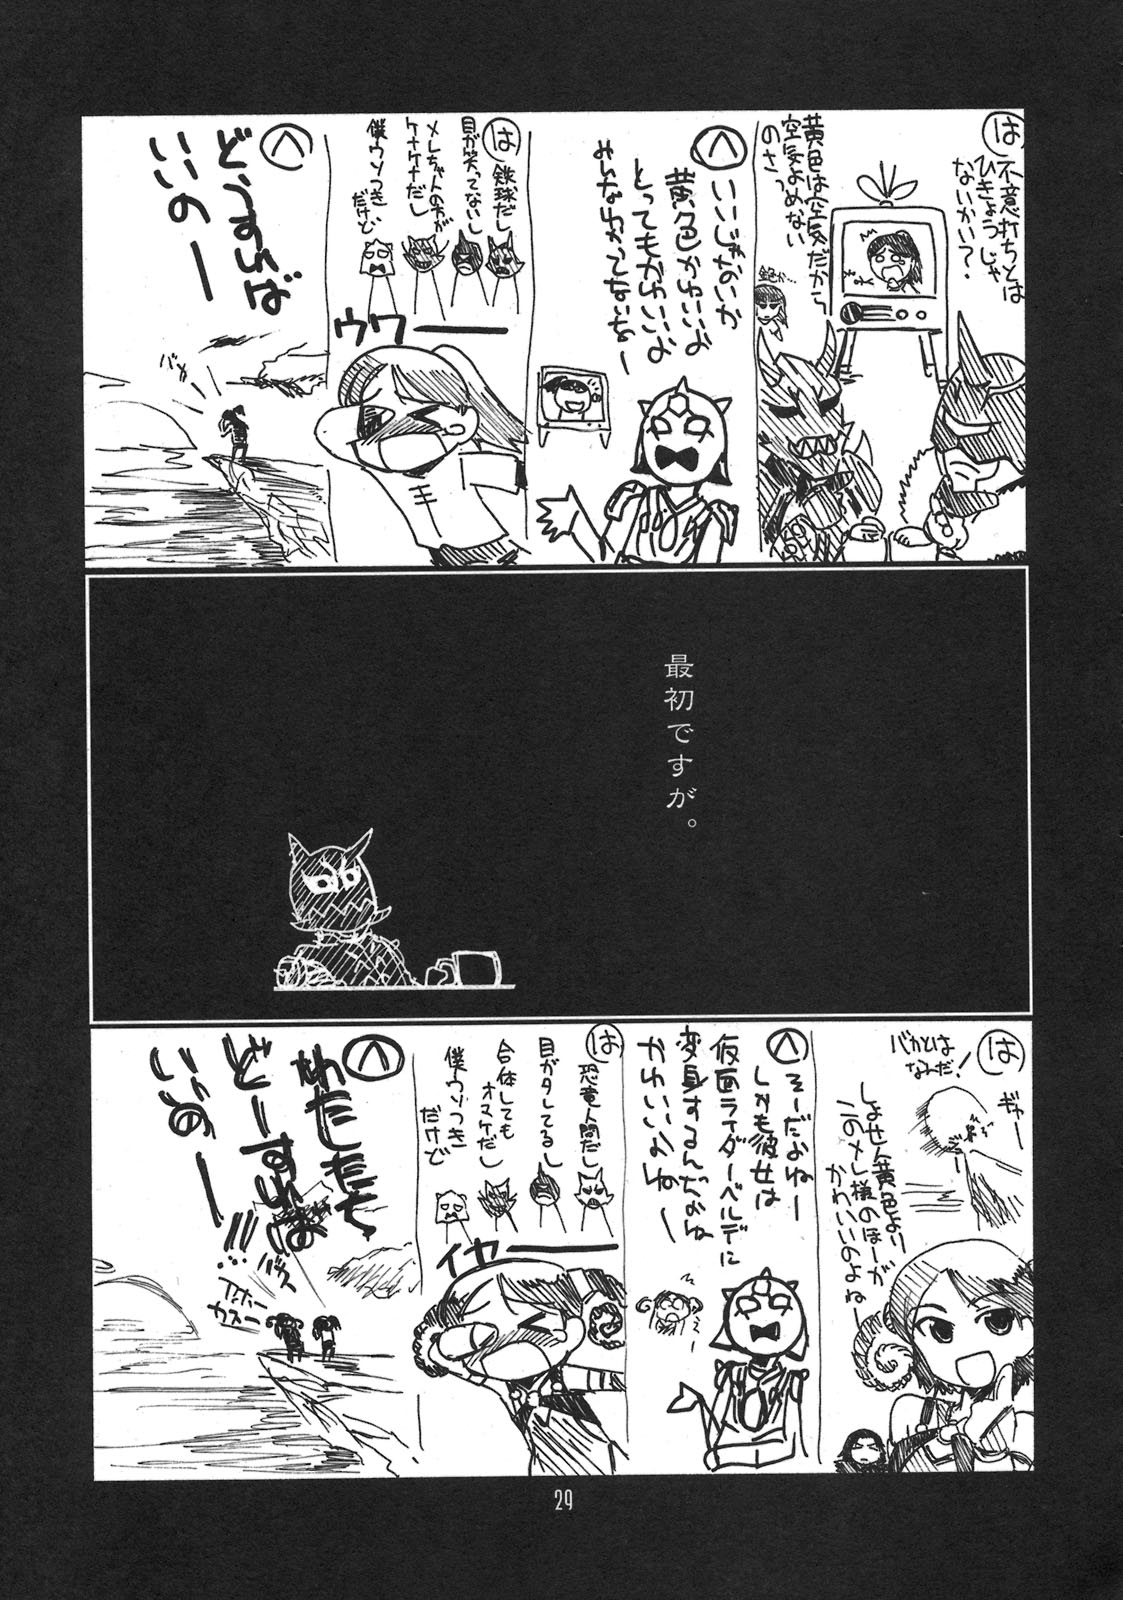 は
不意打ちとは
ひきょうじゃ
ないかい?
黄色は空気だから
空気よめない
のさっ
へ
いいじゃないか
黄色かわいいよ
とってもかわいいよ
みんなわかってないなー
は
鉄球だし
目が笑ってないし
メレちゃんの方が
ケナゲだし
僕ウソつき
だけど
ウワー
へ
どうすれば
いいのー
バカー
最初ですが。
は
バカとは
なんだ!
ギャー
しょせん黄色より
このメレ様のほーが
かわいいのよねー
へ
そーだよねー
しかも彼女は
仮面ライダーベルデに
変身するんだよね
かわいいよねー
は
恐竜人間だし
目がタレてるし
合体しても
オマケだし
僕ウソつき
だけど
イヤー
へ
わたしたち
どーすれば
いいのー
アホー
カスー
29